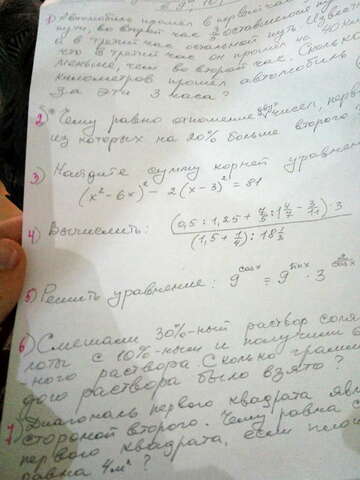 1) Автомобиль прошел в первый час
пути, во второй час оставшегося
и в третий час остальной путь. Известно,
что в третий час он прошел на 40 км
меньше, чем во второй час. Сколько
километров прошел автомобиль
за эти 3 часа?
2) Чему равно отношение двух чисел, первое
из которых на 20% больше второго
3) Найдите сумму корней уравнения
(x² - 6x)² - 2(x - 3)² = 81
4) Вычислить: (0,5 : 1,25 + 7/5 : 1 4/7 - 3/11) · 3
(1,5 + 1/4) : 18 1/3
5) Решить уравнение: 9^cosx = 9^sinx · 3
6) Смешали 30%-ный раствор соля
лоты с 10%-ным и получили 6
ного раствора. Сколько грамм
дого раствора было взято?
7) Диагональ первого квадрата явл
стороной второго. Чему равна
первого квадрата, если площ
равна 4м²?